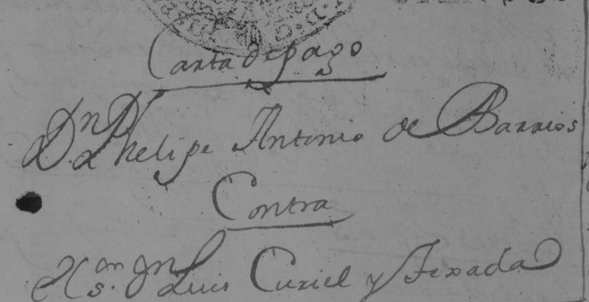 Carta de pago
Dn Phelipe Antonio de Barrios
Contra
Dn Luis Curiel y Texada